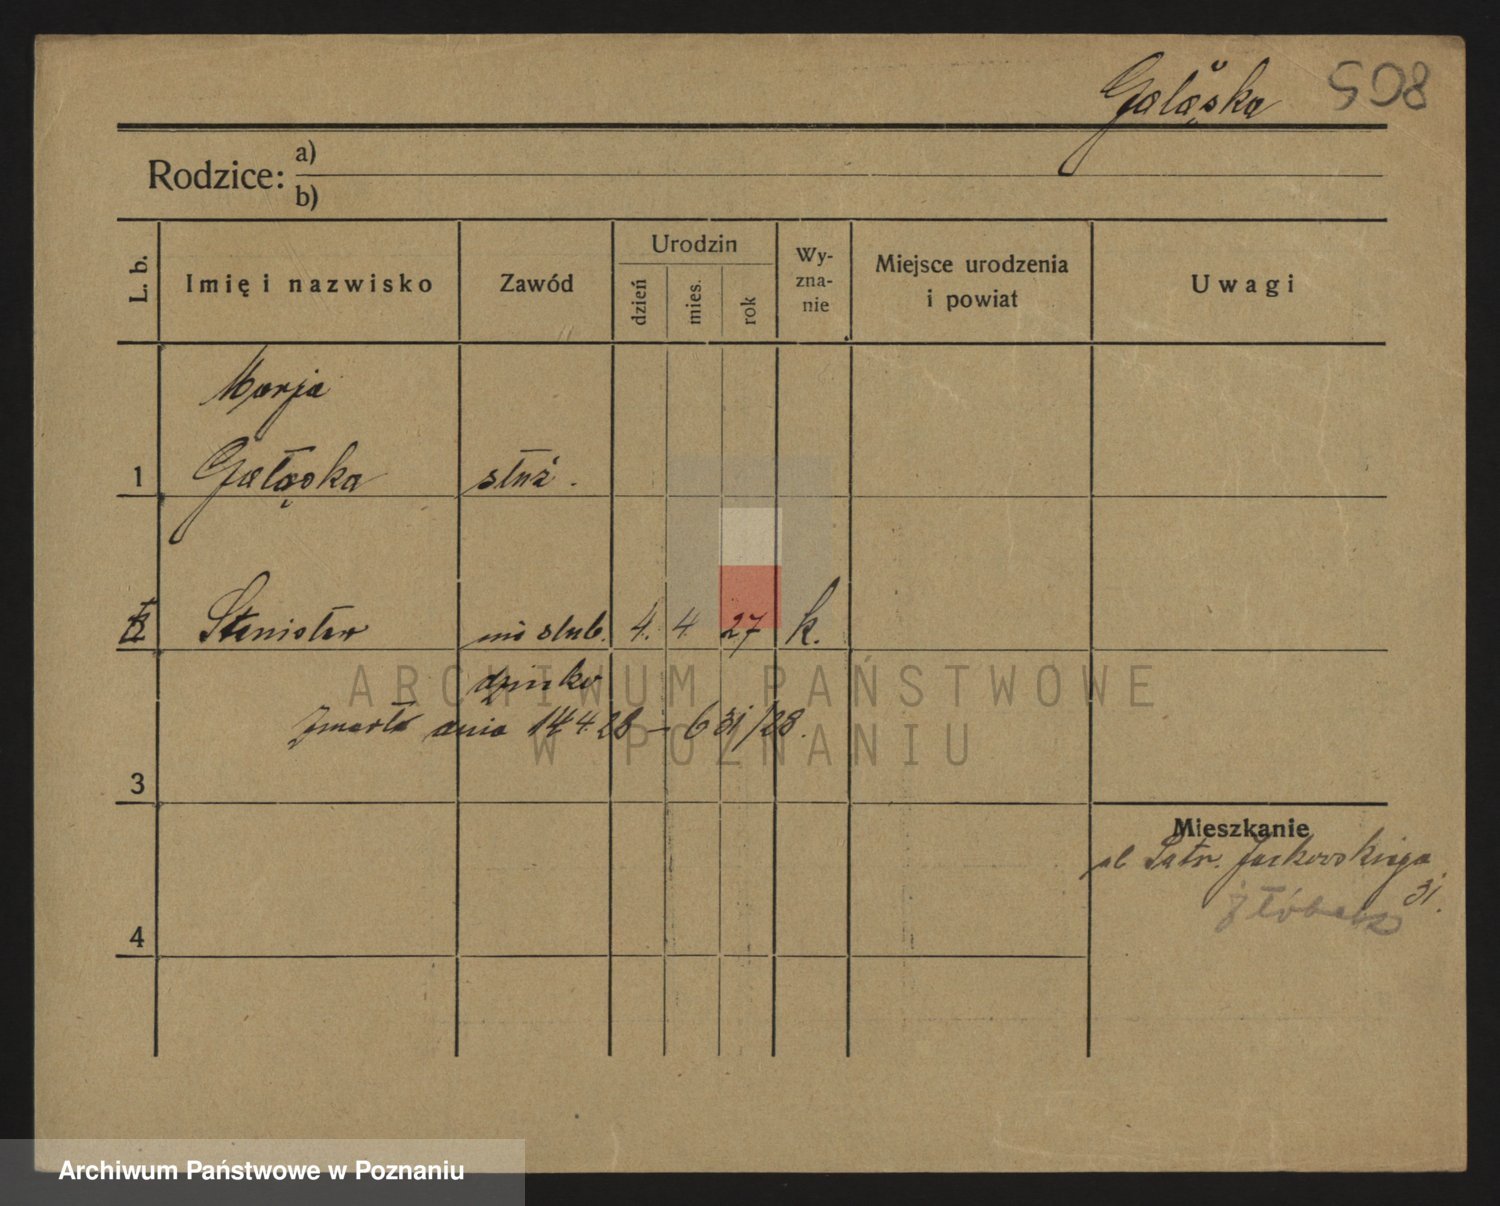 Gałąska 508
Rodzice: a)
b)
L. b.
Imię i nazwisko
Zawód
Urodzin
dzień
mies.
rok
Wy-
zna-
nie
Miejsce urodzenia
i powiat
Uwagi
Marja
1 Gałąska służ.
Stanisław nieślub. 4. 4 27 k.
dziecko
Zmarł dnia 14 4 28 – 631/28.
3
Mieszkanie
ul Patr. Jackowskiego
31.
żłóbek
4
ARCHIWUM PAŃSTWOWE
W POZNANIU
Archiwum Państwowe w Poznaniu